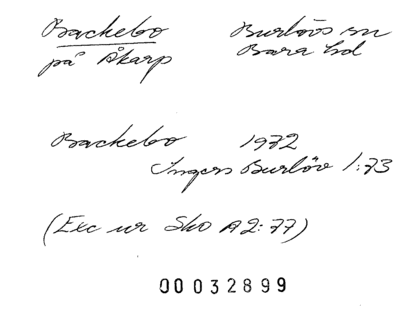 Backebo Burlövs sn
på Åkarp Bara hd
Backebo 1972
Ingers Burlöv 1:73
(Exc ur Sko A2:77)
00032899